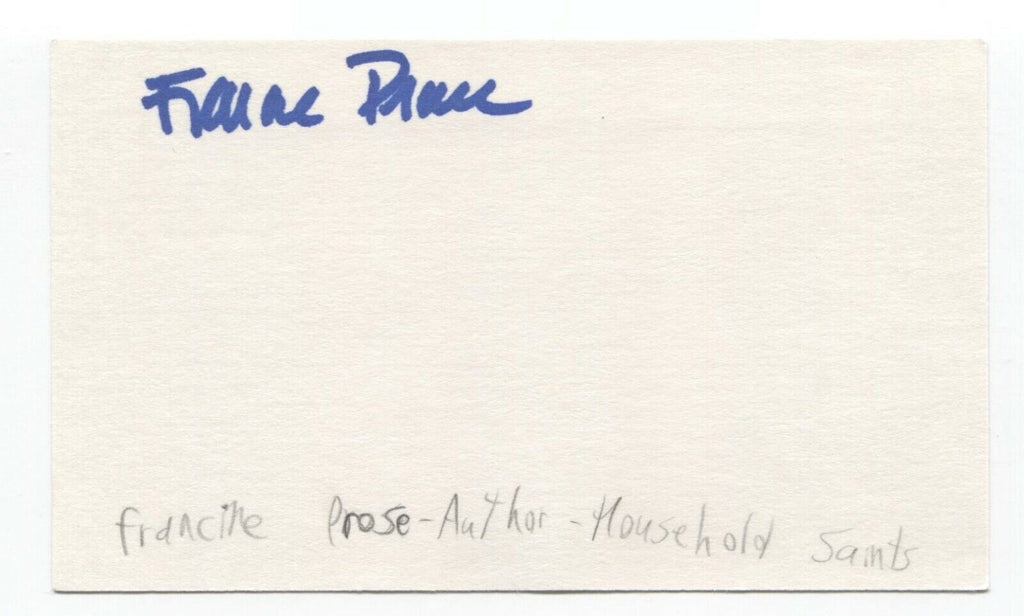 Francine Prose
Francine Prose - Author - Household Saints